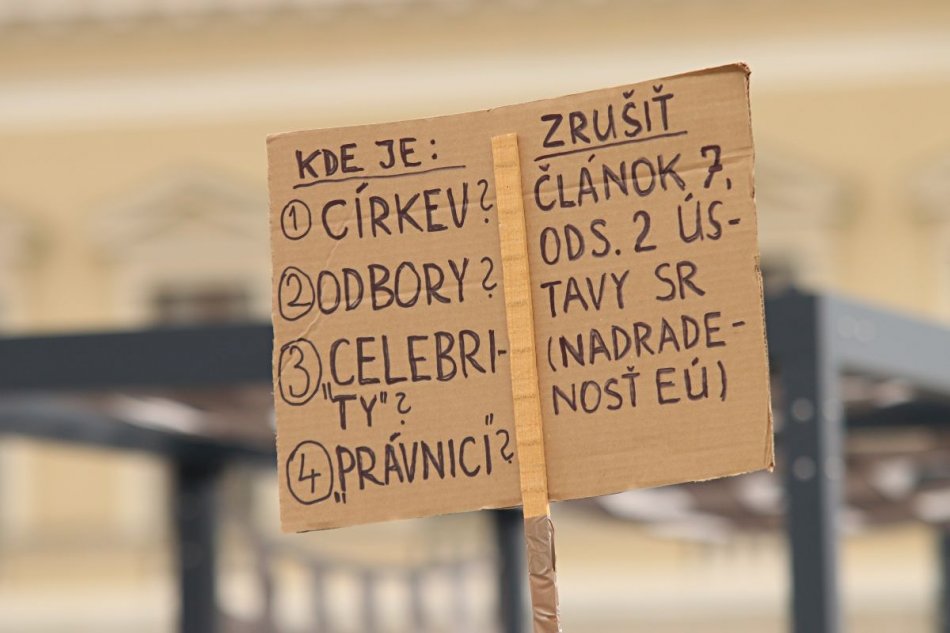 KDE JE:
① CÍRKEV?
② ODBORY?
③ CELEBRI-
"TY"?
④ „PRÁVNICI"?
ZRUŠIŤ
ČLÁNOK 7,
ODS. 2 ÚS-
TAVY SR
(NADRADE-
NOSŤ EÚ)